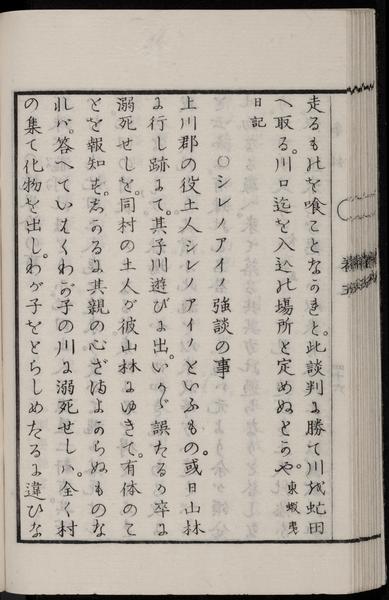 走るものを喰ことなかれと。此談判に勝て川を虻田
へ取る。川口迄を入込の場所と定めぬとかや。東蝦夷
日記
〇シレノアイノ強談の事
上川郡の役土人シレノアイノといふもの。或日山林
に行し跡にて。其子川遊びに出。いかゞ誤たるか卒に
溺死せしを。同村の土人が彼山林にゆきて。有体のこ
とを報知せ。しかるに其親の心ざまよからぬものな
れバ。答へていはくわが子の川に溺死せしハ。全く村
の集て化物を出し。わが子をとらしめたるに違ひな